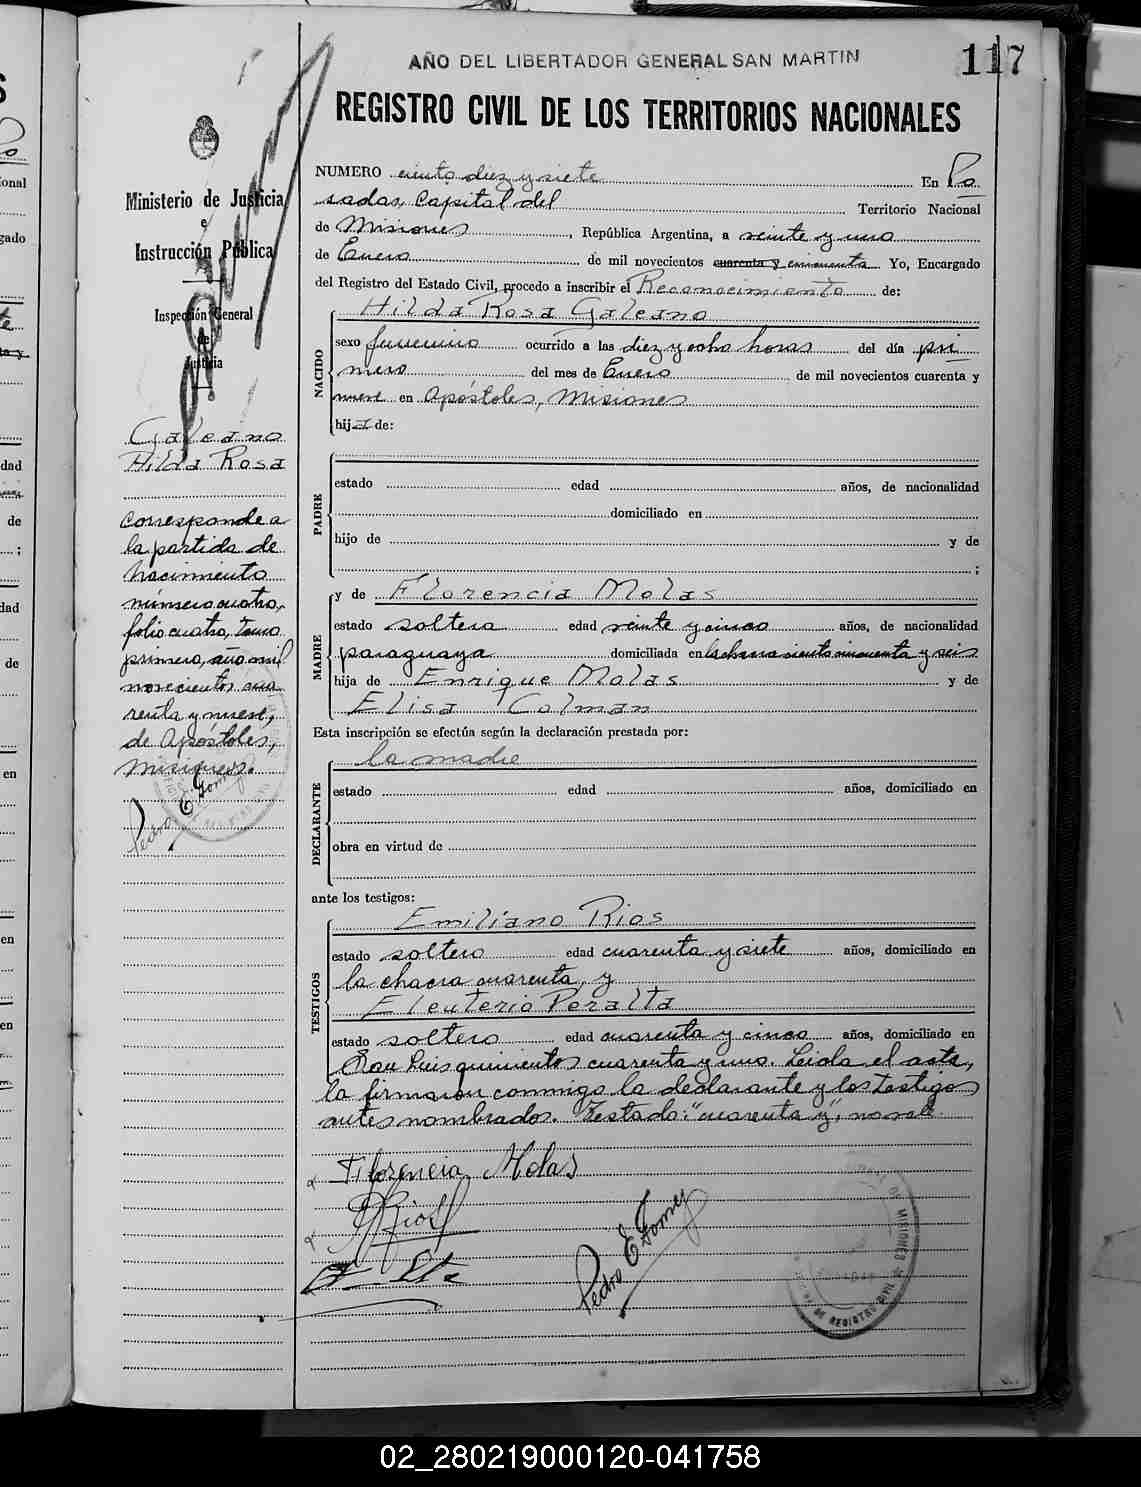 AÑO DEL LIBERTADOR GENERAL SAN MARTIN
117
REGISTRO CIVIL DE LOS TERRITORIOS NACIONALES
Ministerio de Justicia
e
Instrucción Pública
Inspección General
de
Justicia
Galeano
Hilda Rosa
Corresponde a
la partida de
nacimiento
número cuatro,
folio cuatro, tomo
primero, año mil
novecientos cua
renta y nueve,
de Apóstoles,
Misiones.
Pedro E Gomez
NUMERO ciento diez y siete En Po
sadas, Capital del Territorio Nacional
de Misiones, República Argentina, a veinte y uno
de Enero de mil novecientos cuarenta y cincuenta Yo, Encargado
del Registro del Estado Civil, procedo a inscribir el Reconocimiento de:
NACIDO
Hilda Rosa Galeano
sexo femenino ocurrido a las diez y ocho horas del día pri
mero del mes de Enero de mil novecientos cuarenta y
nueve en Apóstoles, Misiones
hija de:
PADRE
estado edad años, de nacionalidad
domiciliado en
hijo de y de
;
MADRE
y de Florencia Molas
estado soltera edad veinte y cinco años, de nacionalidad
paraguaya domiciliada en la chacra ciento cincuenta y seis
hija de Enrique Molas y de
Elisa Colman
Esta inscripción se efectúa según la declaración prestada por:
DECLARANTE
la madre
estado edad años, domiciliado en
obra en virtud de
ante los testigos:
TESTIGOS
Emiliano Rios
estado soltero edad cuarenta y siete años, domiciliado en
la chacra cuarenta, y
Eleuterio Peralta
estado soltero edad cuarenta y cinco años, domiciliado en
San Luis quinientos cuarenta y uno. Leida el acta,
la firmaron conmigo la declarante y los testigos
antes nombrados. Testado: "cuarenta y", no vale.
Florencia Molas
ERios
Pedro E Gomez
DE MISIONES
REGISTRO CIVIL
02_280219000120-041758